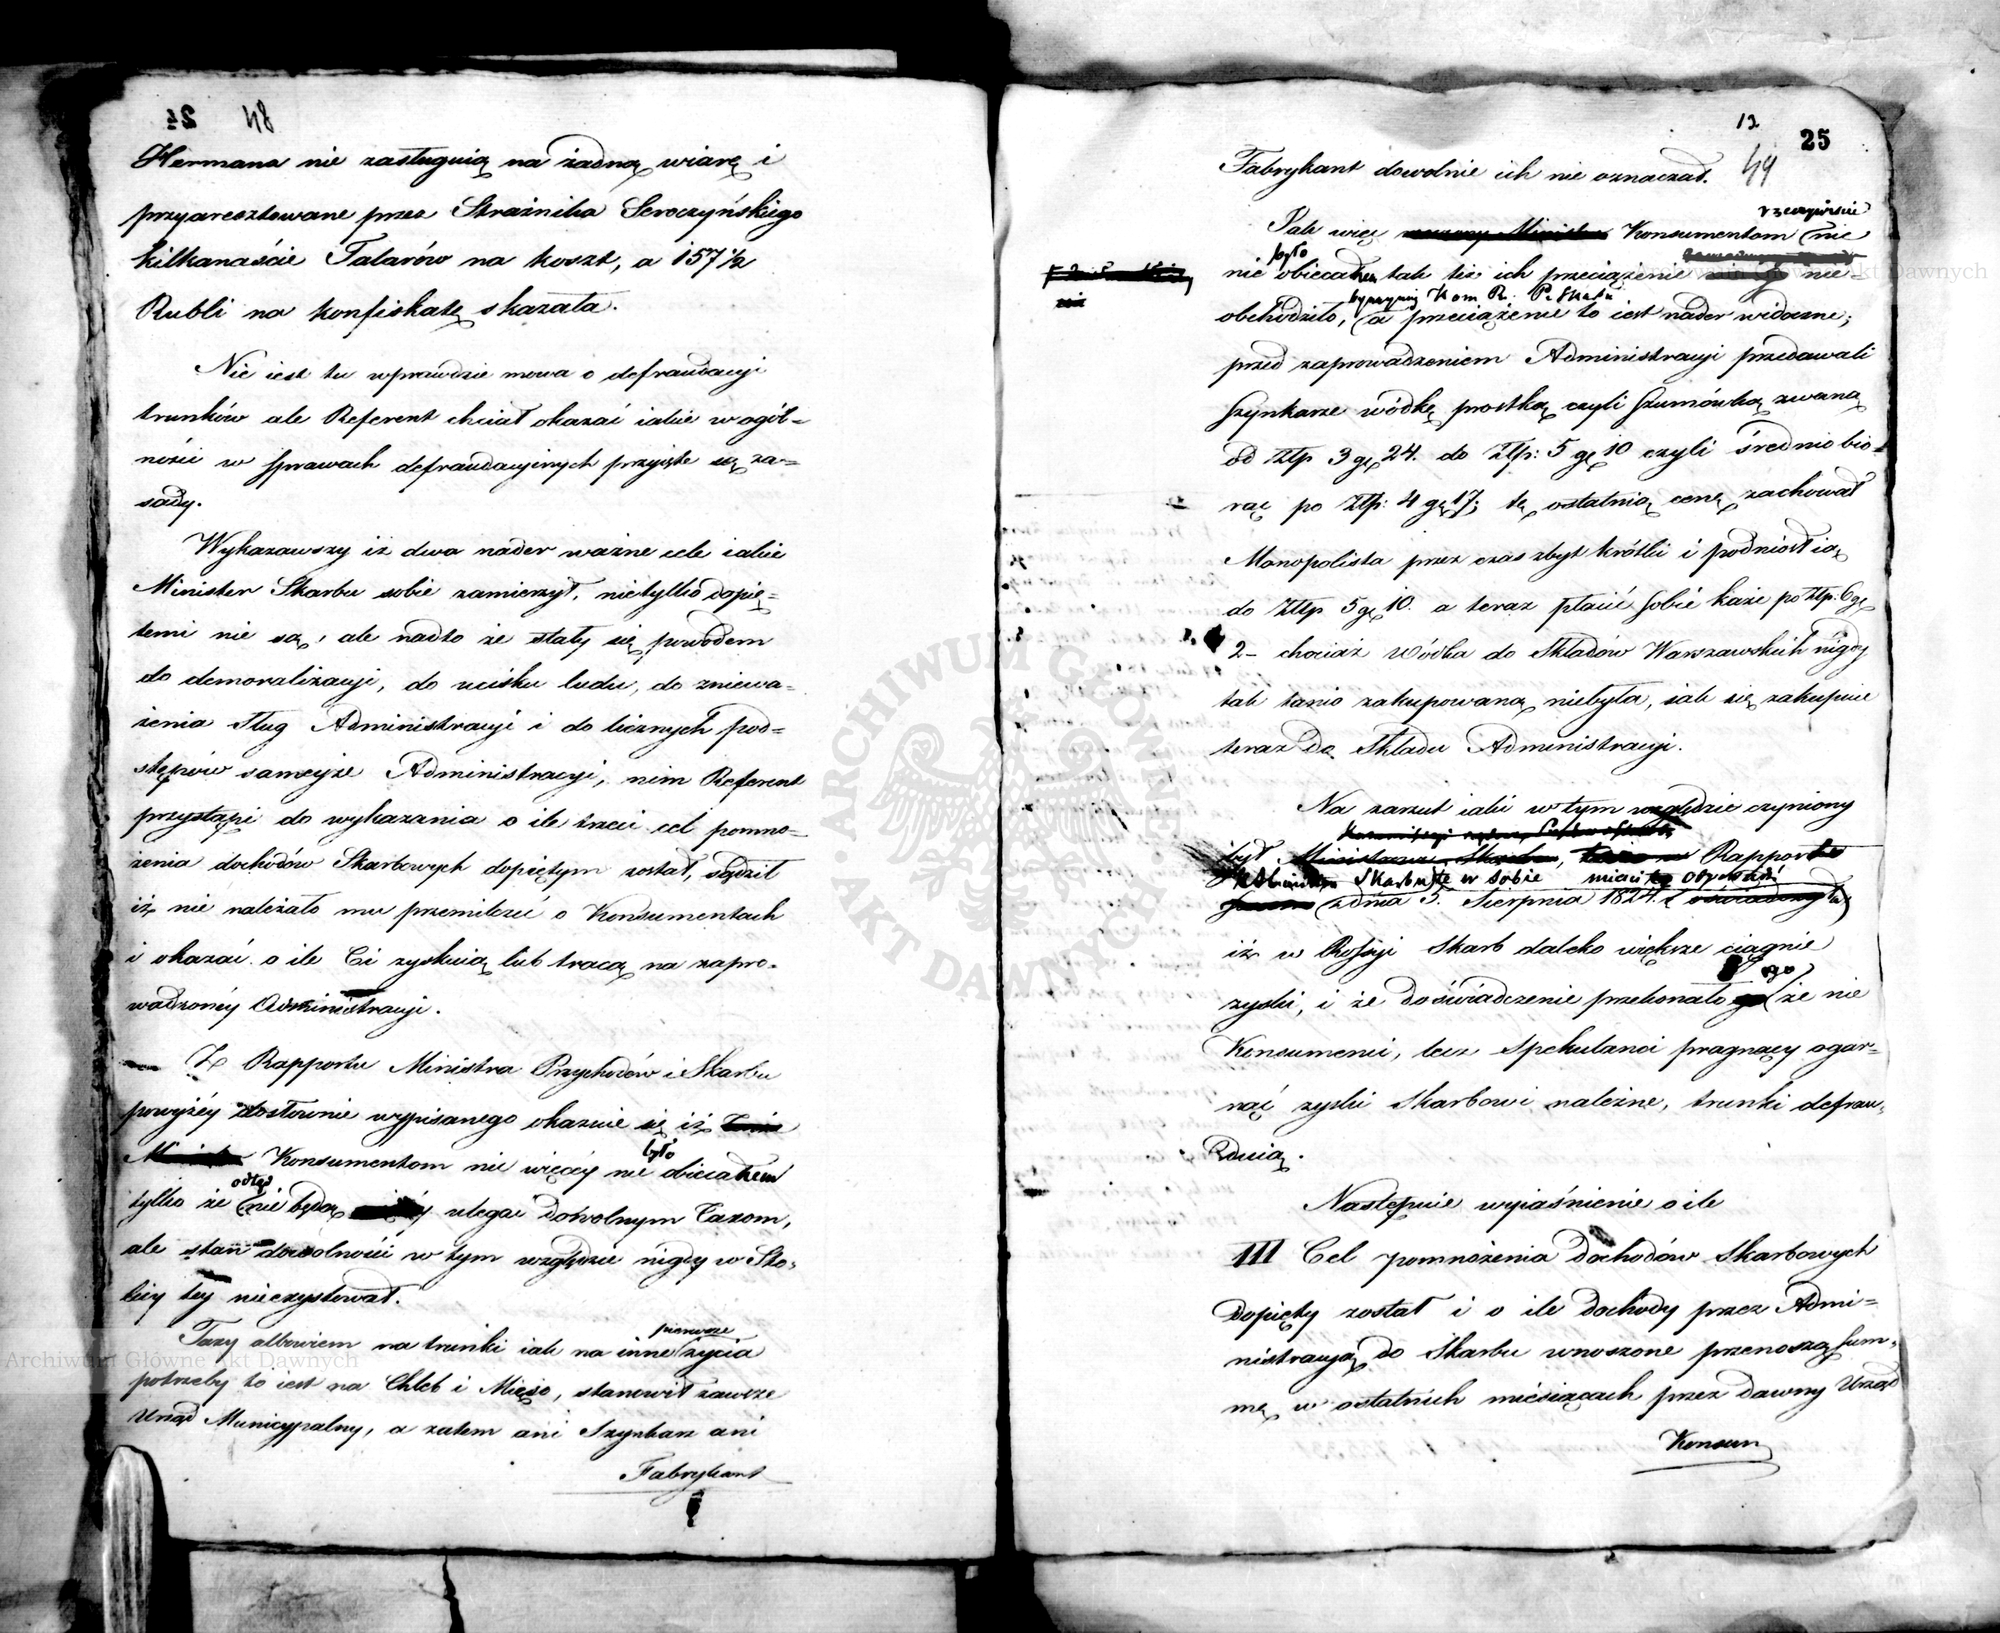 84
Hermana nie zasługuią na żadną wiarę i
przyaresztowane przez Strażnika Seroczyńskiego
kilkanaście Talarów na koszt, a 157 1/2
Rubli na konfiskatę skazała.
Nie iest tu wprawdzie mowa o defraudacyi
trunków ale Referent chciał okazać iakie w ogól=
ności w sprawach defraudacyinych przyięte są za=
sady.
Wykazawszy iż dwa nader ważne cele iakie
Minister Skarbu sobie zamierzył, nietylko dopię=
temi nie są, ale nadto że stały się powodem
do demoralizacyi, do ucisku ludu, do zniewa=
żenia Sług Administracyi i do licznych pod=
stępów sameyże Administracyi, nim Referent
przystąpi do wykazania o ile trzeci cel pomno=
żenia dochodów Skarbowych dopiętym został, sądził
iż nie należało mu przemilczeć o Konsumentach
i okazać o ile Ci zyskuią lub tracą na zapro=
wadzonéy Administracyi.
Z Rapportu Ministra Przychodów i Skarbu
powyżéy dosłownie wypisanego okazuie się iż
było
Konsumentom nic więcéy nie obiecałem
odtąd
tylko że nie będą ulegać dowolnym Taxom,
ale stan dowolności w tym względzie nigdy w Sto=
licy tey nieexystował.
pierwsze
Taxy albowiem na trunki iak na inne życia
potrzeby to iest na Chleb i Mięso, stanowił zawsze
Urząd Municypalny, a zatem ani Szynkarz ani
Fabrykant
12
25
49
Fabrykant dowolnie ich nie oznaczał.
rzeczywiście
Jak więc Konsumentom nic
było
nie obiecałem tak też ich przeciążenie nie=
Kom. R. P. i Skarbu
obchodziło, a przeciążenie to iest nader widoczne;
przed zaprowadzeniem Administracyi przedawali
Szynkarze wódkę prostką czyli Szumówką zwaną
od Złp 3 gr 24. do Złp: 5 gr 10 czyli średnio bio=
rąc po Złp: 4 gr 17; tę ostatnią cenę zachował
Monopolista przez czas zbyt krótki i podniósł ią
do Złp 5 gr 10. a teraz płacić sobie każe po Złp: 6 gr
2- chociaż Wódka do Składów Warszawskich nigdy
tak tanio zakupowaną niebyła, iak się zakupuie
teraz do Składu Administracyi.
Na zarzut iaki w tym względzie czyniony
był Rapport
Skarbu w sobie miał
z dnia 5. Sierpnia 1824.
iż w Rossyi Skarb daleko większe ciągnie
zyski, i że doświadczenie przekonało że nie
Konsumenci, lecz Spekulanci pragnący ogar=
nąć zyski Skarbowi należne, trunki defrau=
duią.
Następuie wyiaśnienie o ile
III Cel pomnożenia dochodów Skarbowych
dopięty został i o ile dochody przez Admi=
nistracyą do Skarbu wnoszone przenoszą sum=
mę w ostatnich miesiącach przez dawny Urząd
Konsum
ARCHIWUM GŁÓWNE AKT DAWNYCH
Archiwum Główne Akt Dawnych
Archiwum Główne Akt Dawnych